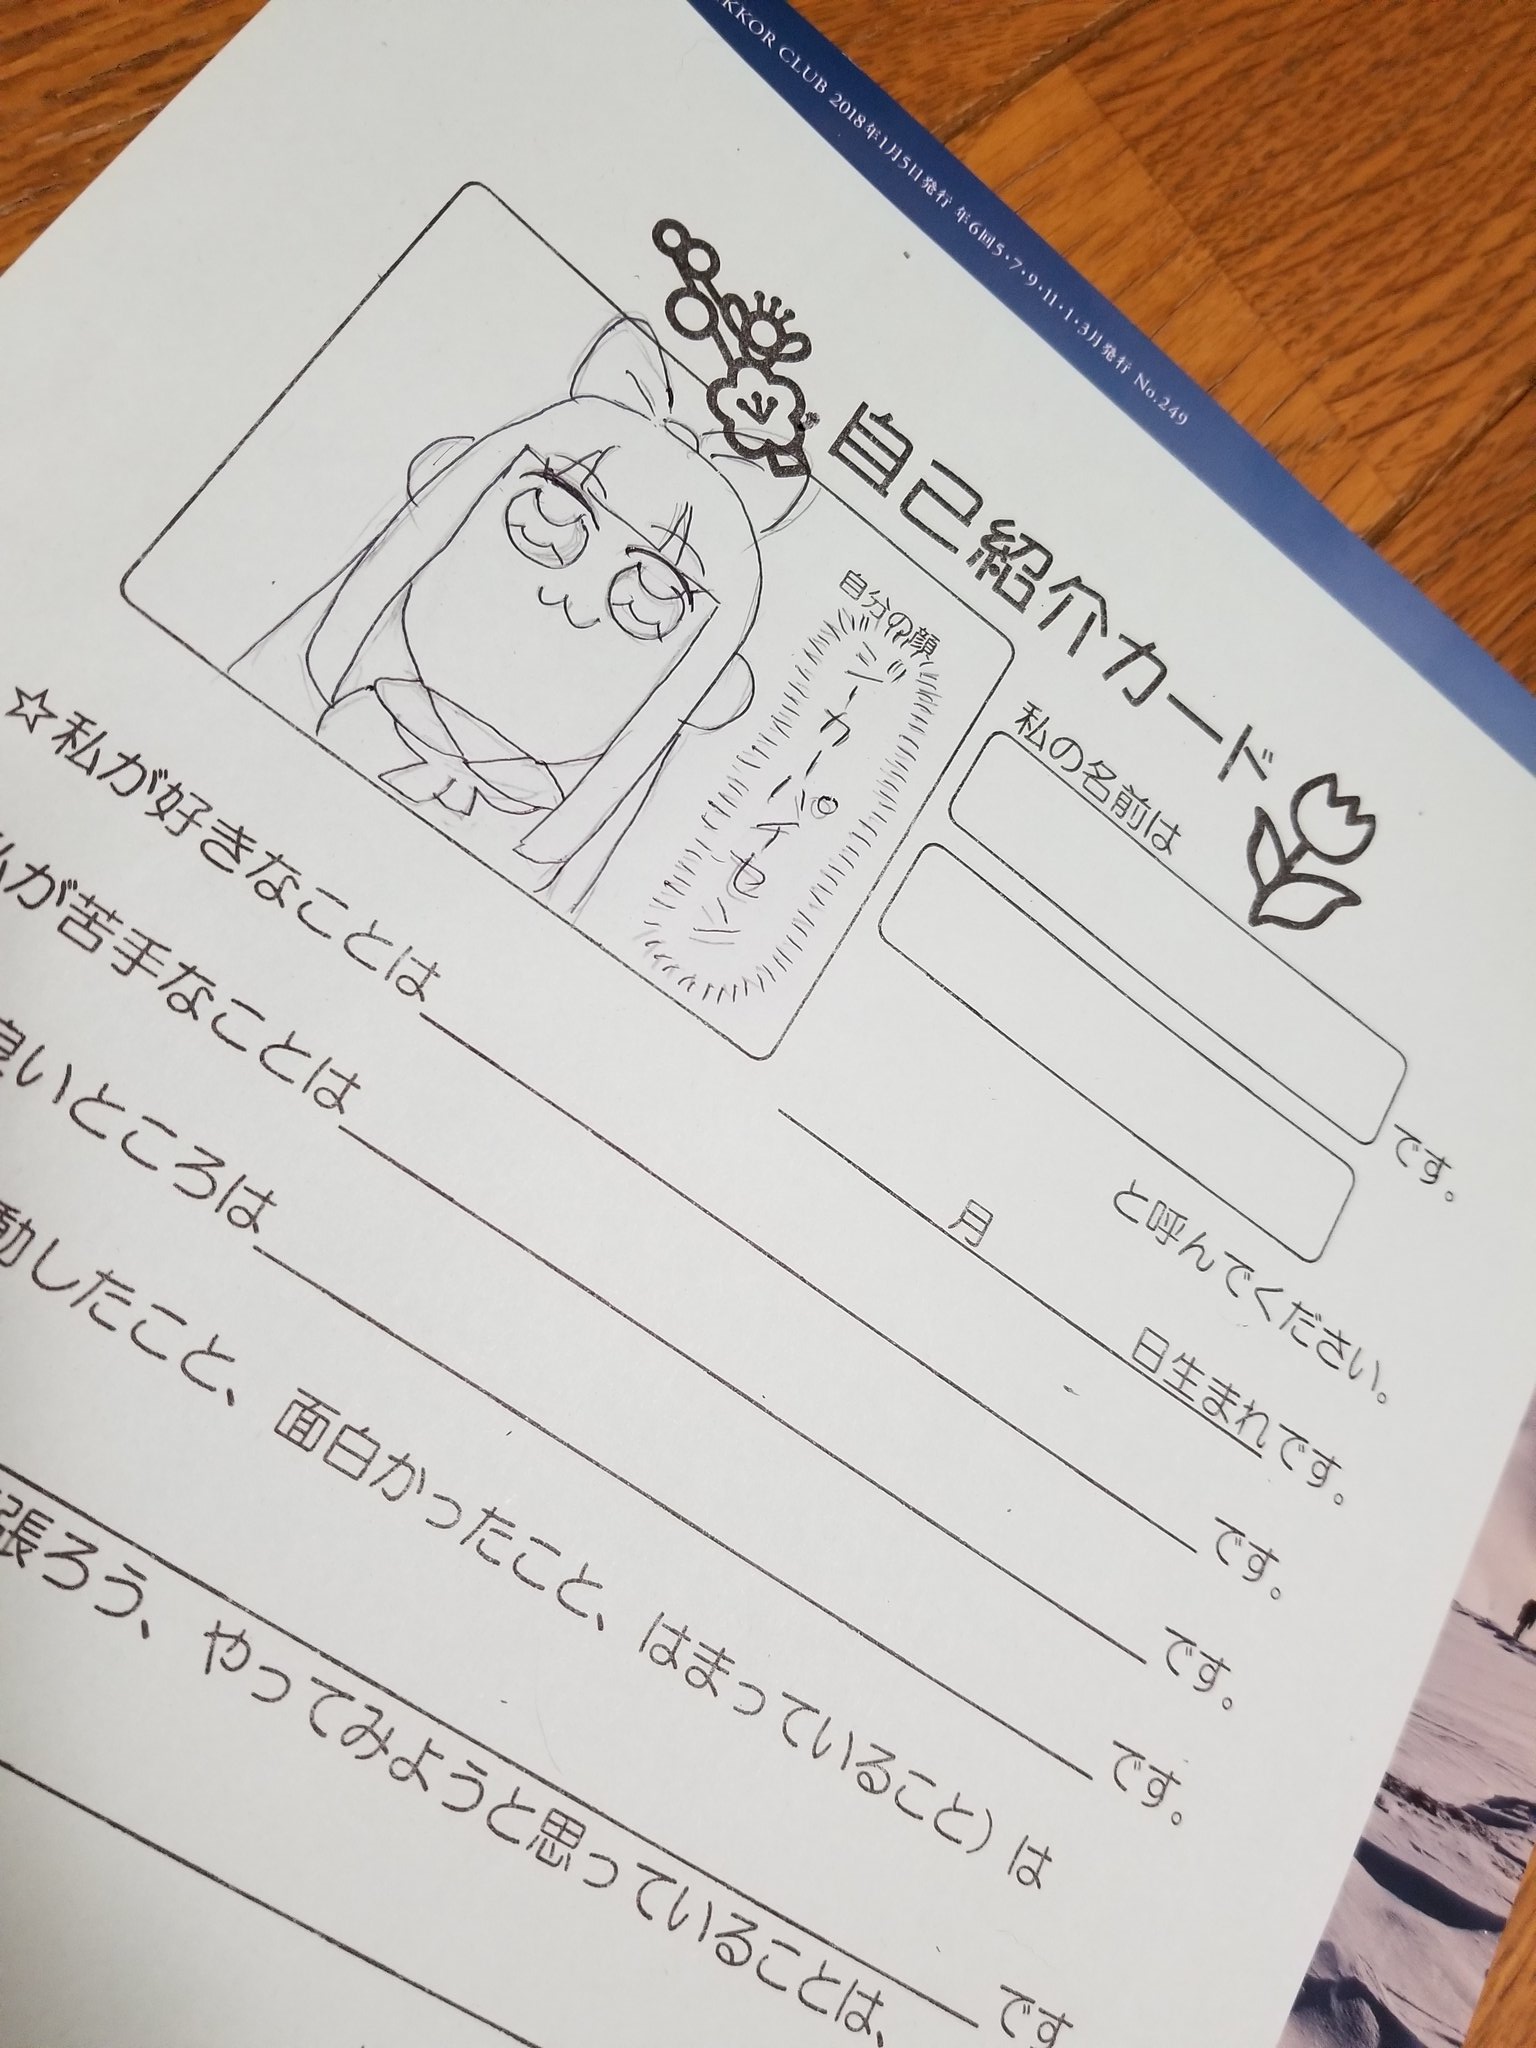 KKOR CLUB 2018年1月5日発行 年6回5・7・9・11・1・3月発行 No.249
自己紹介カード
自分の顔
ジーカーパイセン
私の名前は
です。
と呼んでください。
月 日生まれです。
☆私が好きなことは です。
が苦手なことは です。
良いところは です。
動したこと、面白かったこと、はまっていること)は
です
張ろう、やってみようと思っていることは、